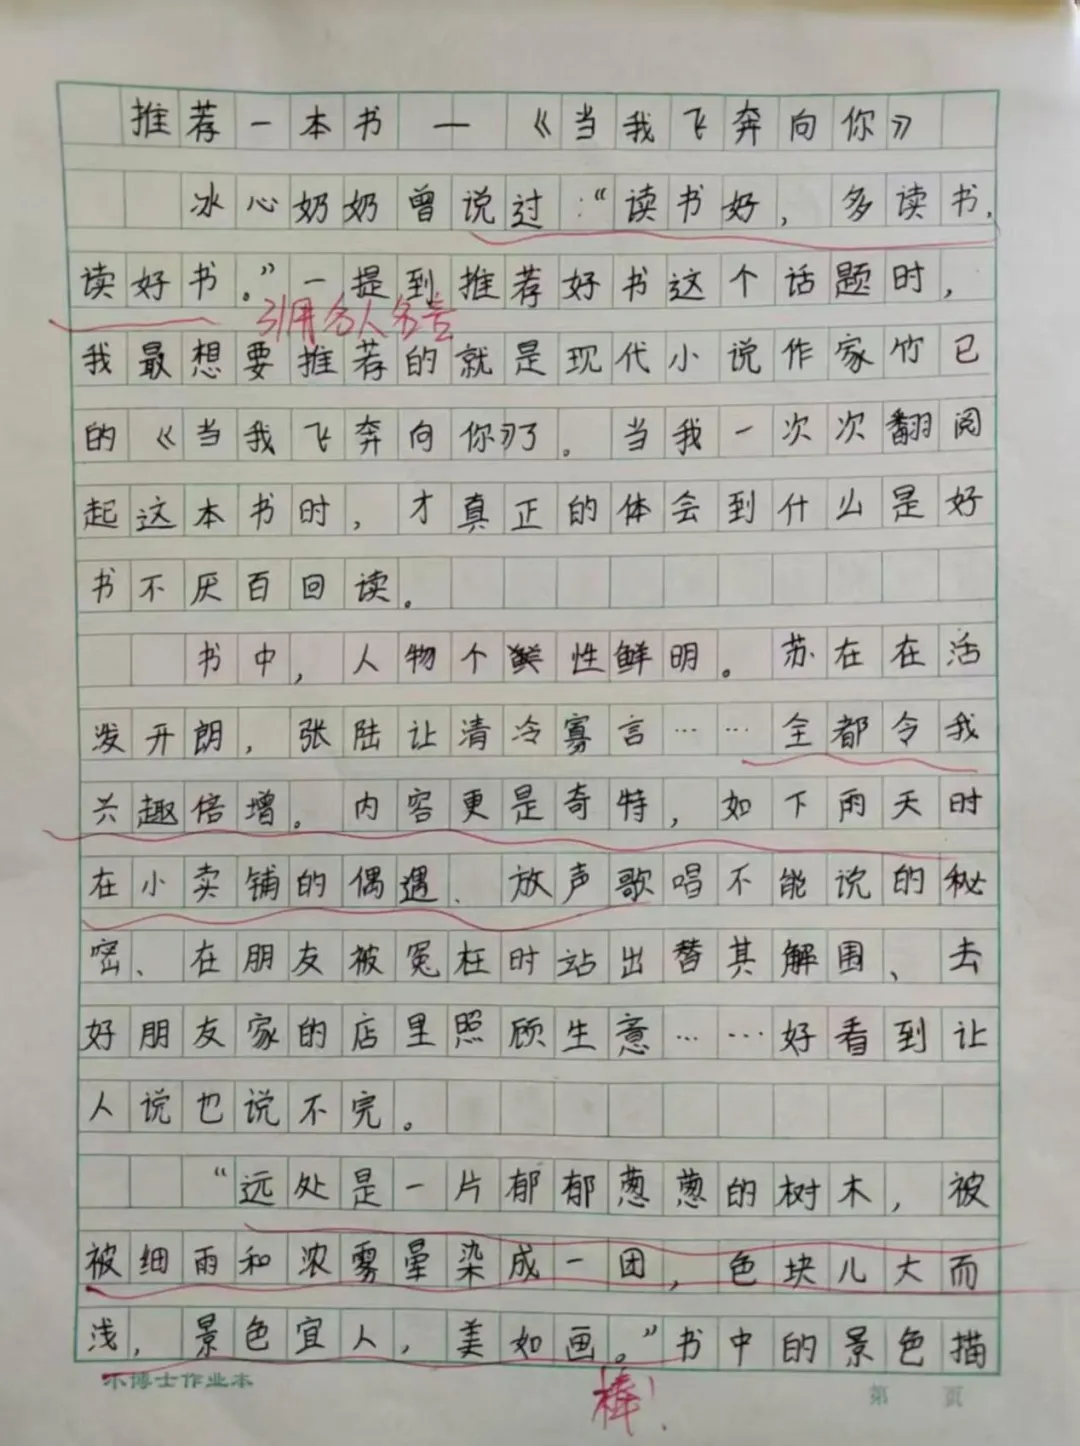 推荐一本书—《当我飞奔向你》
冰心奶奶曾说过:“读书好,多读书,
读好书。”一提到推荐好书这个话题时,
引用名人名言
我最想要推荐的就是现代小说作家竹已
的《当我飞奔向你》了。当我一次次翻阅
起这本书时,才真正的体会到什么是好
书不厌百回读。
书中,人物个性鲜明。苏在在活
泼开朗,张陆让清冷寡言……全都令我
兴趣倍增。内容更是奇特,如下雨天时
在小卖铺的偶遇、放声歌唱不能说的秘
密、在朋友被冤枉时站出替其解围、去
好朋友家的店里照顾生意……好看到让
人说也说不完。
“远处是一片郁郁葱葱的树木,被
被细雨和浓雾晕染成一团,色块儿大而
浅,景色宜人,美如画。”书中的景色描
木博士作业本
棒!
第 页